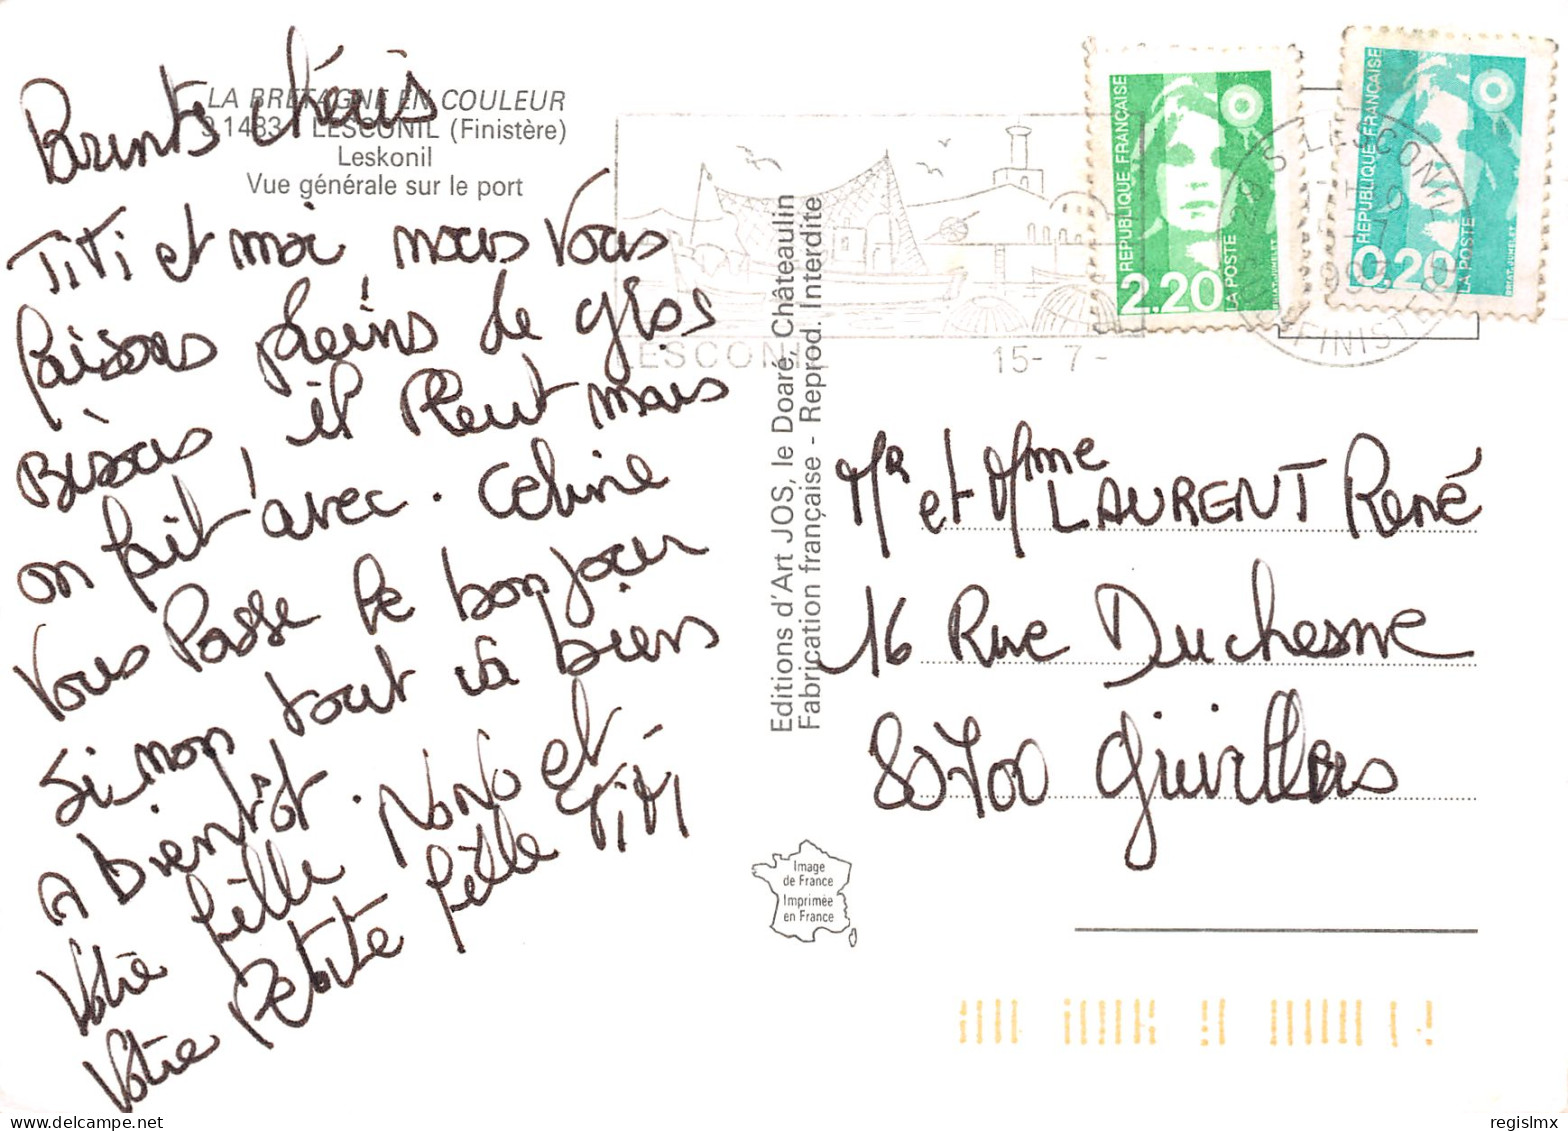 LA BRETAGNE EN COULEUR
LESCONIL (Finistère)
Leskonil
Vue générale sur le port
chéris
TiTi et moi nous vous
faisons pleins de gros
Bisous, il Pleut mais
on fait avec. Celine
vous Passe le bonjour
Si non tout va bien
A bientôt. NoNo et
Votre fille TiTi
Votre petite fille
Editions d'Art JOS, le Doaré, Châteaulin
Fabrication française - Reprod. Interdite
LESCONIL
15- 7 -
RÉPUBLIQUE FRANÇAISE
2,20
LA POSTE
RÉPUBLIQUE FRANÇAISE
0,20
LA POSTE
LESCONIL
FINISTERE
Mr et Mme LAURENT René
16 Rue Duchesne
80700 Grivillers
Image
de France
Imprimée
en France
regislmx